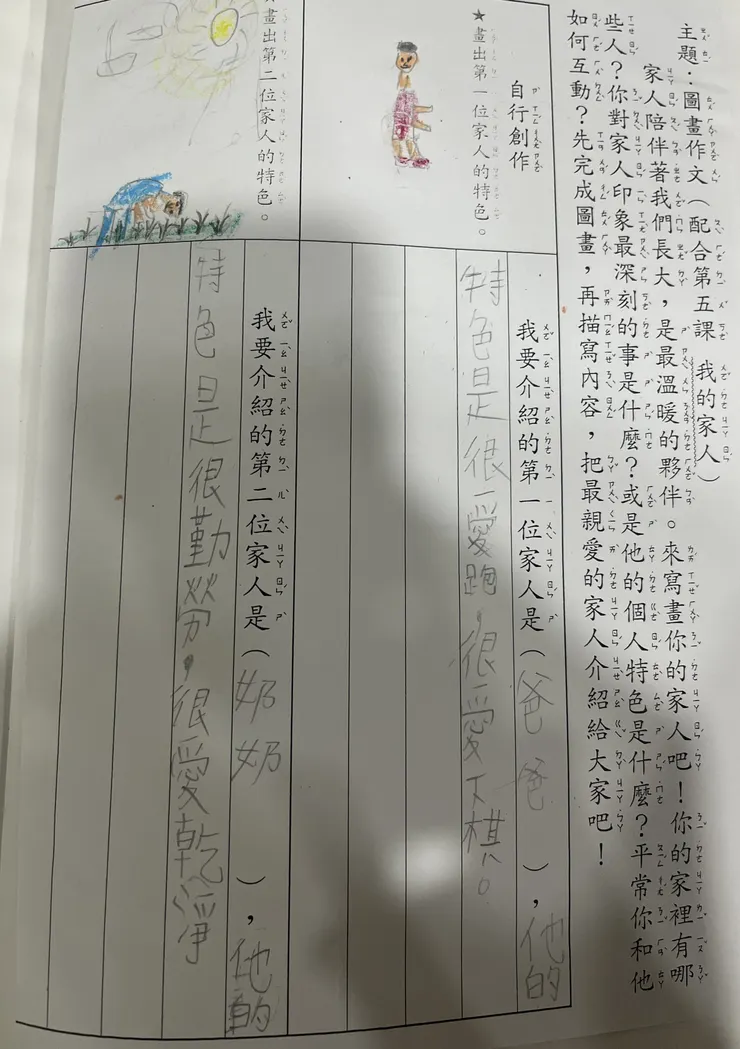 主題：圖畫作文（配合第五課　我的家人）
家人陪伴著我們長大，是最溫暖的夥伴。來寫畫你的家人吧！你的家裡有哪
些人？你對家人印象最深刻的事是什麼？或是他的個人特色是什麼？平常你和他
如何互動？先完成圖畫，再描寫內容，把最親愛的家人介紹給大家吧！
自行創作
★畫出第一位家人的特色。
我要介紹的第一位家人是（爸爸），他的
特色是很愛跑，很愛下棋。
畫出第二位家人的特色。
我要介紹的第二位家人是（奶奶），他的
特色是很勤勞，很愛乾淨